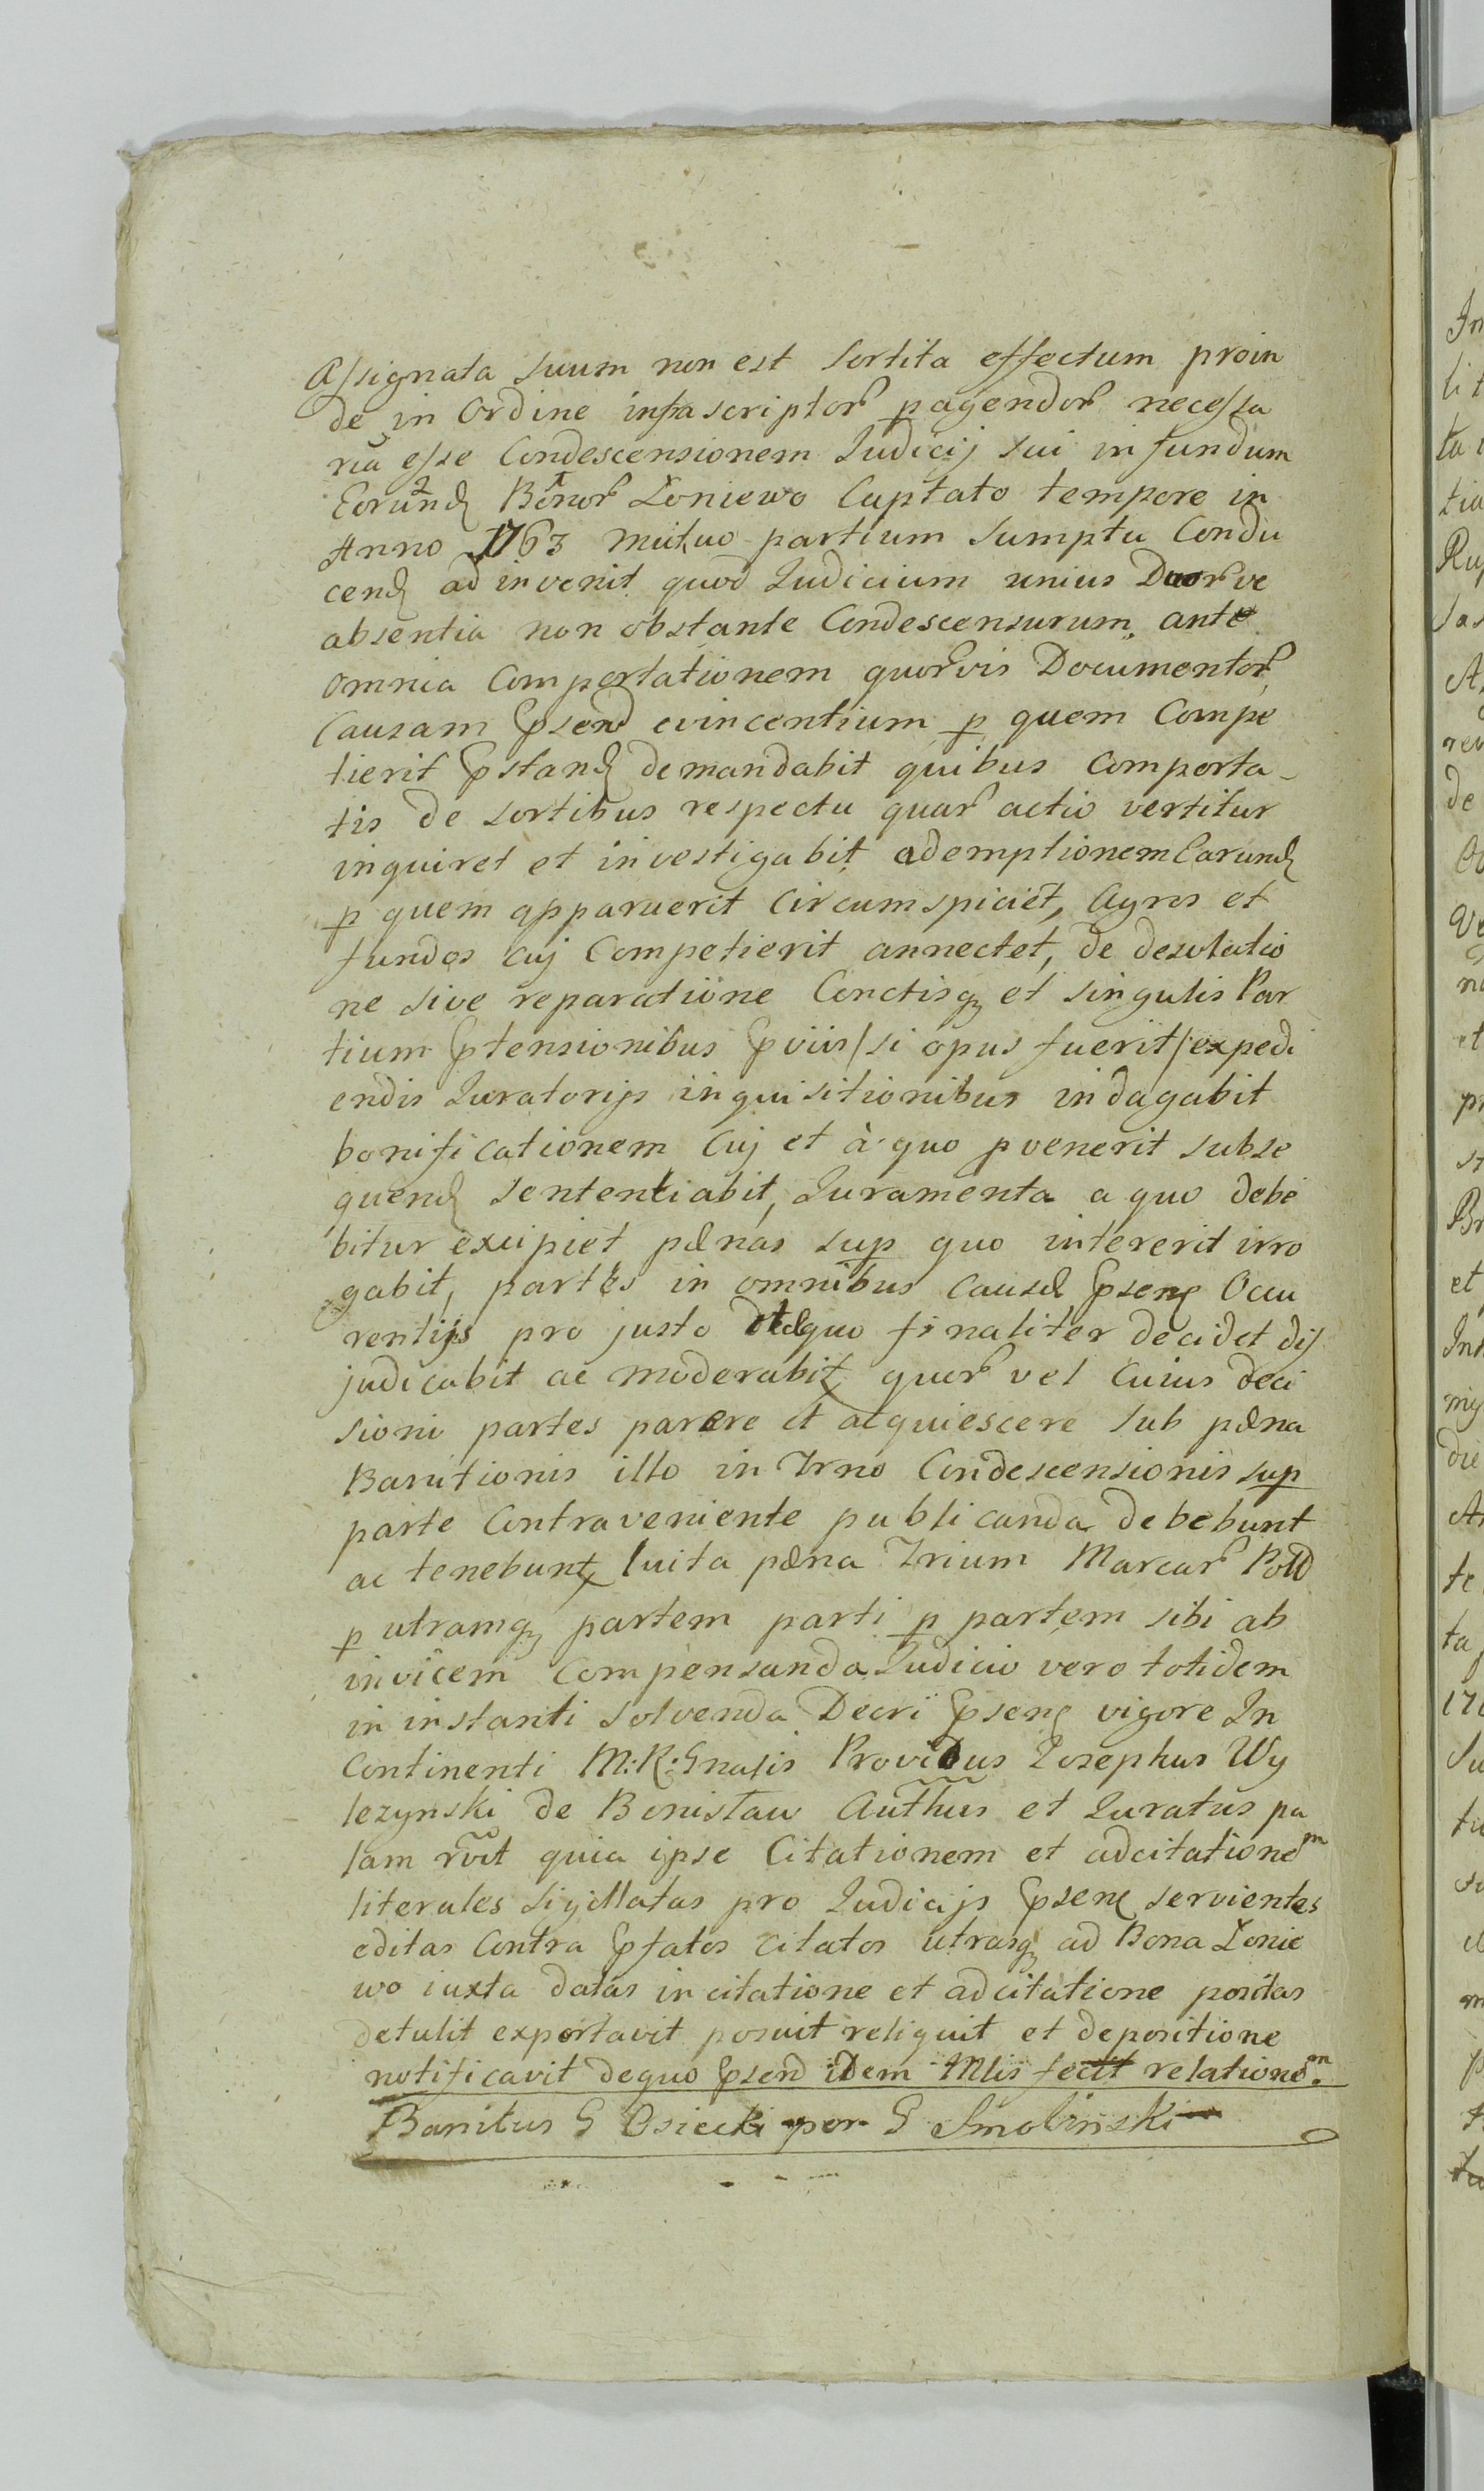 Assignata suum non est sortita effectum proin
de in Ordine infrascriptor pagendor necessa
riā esse Condescensionem Iudicij sui in fundum
Eorund Bonor Łoniewo Captato tempore in
Anno 1763 mutuo partium sumptu Condu
cend ad invenit quod Iudicium unius Duorve
absentia non obstante Condescensurum ante
omnia Comportationem quorvis Documentor
Causam psend evincentium p quem Compe
tierit pstand demandabit quibus Comporta-
tis de sortibus respectu quar actio vertitur
inquiret et investigabit ademptionem Earund
p quem apparuerit circumspiciet, Agros et
fundos cuj Competierit annectet, de desolatio
ne sive reparatione Conctisq et singulis Par
tium ptensionibus pviis /si opus fuerit/ expedi
endis Iuratorijs inquisitionibus indagabit
bonificationem Cuj et à quo pvenerit subse
quend sententiabit, Iuramenta a quo debe
bitur excipiet pænas sup quo intererit irro
gabit, partes in omnibus causæ psenę Occu
rentijs pro justo et æquo finaliter decidet dij
judicabit ac moderabit quor vel Cuius deci
sioni partes parere et acquiescere sub pæna
Banitionis illo in Trno Condescensionis sup
parte Contraveniente publicanda debebunt
ac tenebunt luita pæna Trium Marcar Polld
p utramq partem parti p partem sibi ab
invicem Compensanda Iudicio vero totidem
in instanti solvenda Decri psenę vigore In
Continenti M: R: Gnalis Providus Iosephus Wy
lezynski de Bonisław Auththus et Iuratus pa
lam rvit quia ipse Citationem et adcitationem
literales sigillatas pro Iudicijs psenę servientes
editas Contra pfatos Citatos utrasq ad Bona Łonie
wo iuxta datas in citatione et adcitatione positas
detulit exportavit posuit reliquit et depositione
notificavit dequo psend idem Mlis fecit relationem.
Banitus G Osiecki per G Smolinski